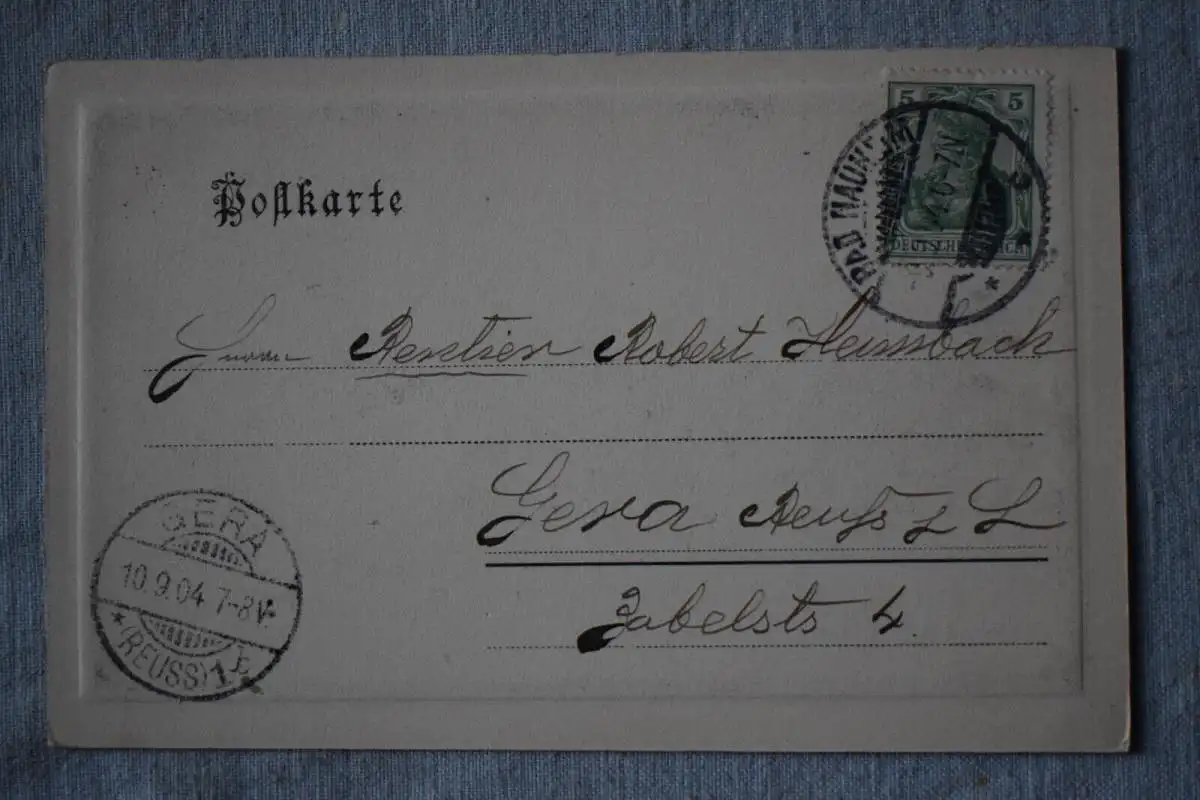 5 5
DEUTSCHES REICH
BAD NAUHEIM
Postkarte
Herrn Rentier Robert Heimbach
Gera Reuß j L
Zabelstr 4.
GERA
10.9.04 7-8V
(REUSS) 1.b